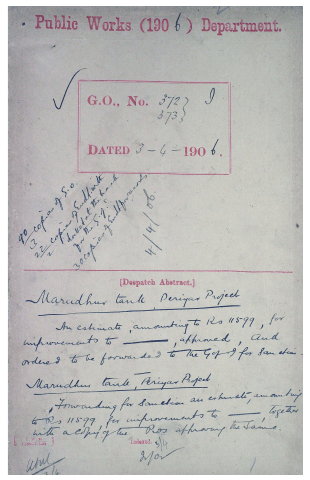 Public Works (1906) Department.
G.O., No. 372 I
373
DATED 3-4-1906.
90 copies of G.O.
4/4/06.
[Despatch Abstract.]
Marudhur tank, Periyar Project
An estimate, amounting to Rs 11599, for
improvements to ——, approved, and
ordered to be forwarded to the Gof I for Sanction.
Marudhur tank, Periyar Project
Forwarding for Sanction an estimate, amounting
to Rs 11599, for improvements to ——, together
with a copy of the Pros approving the same.